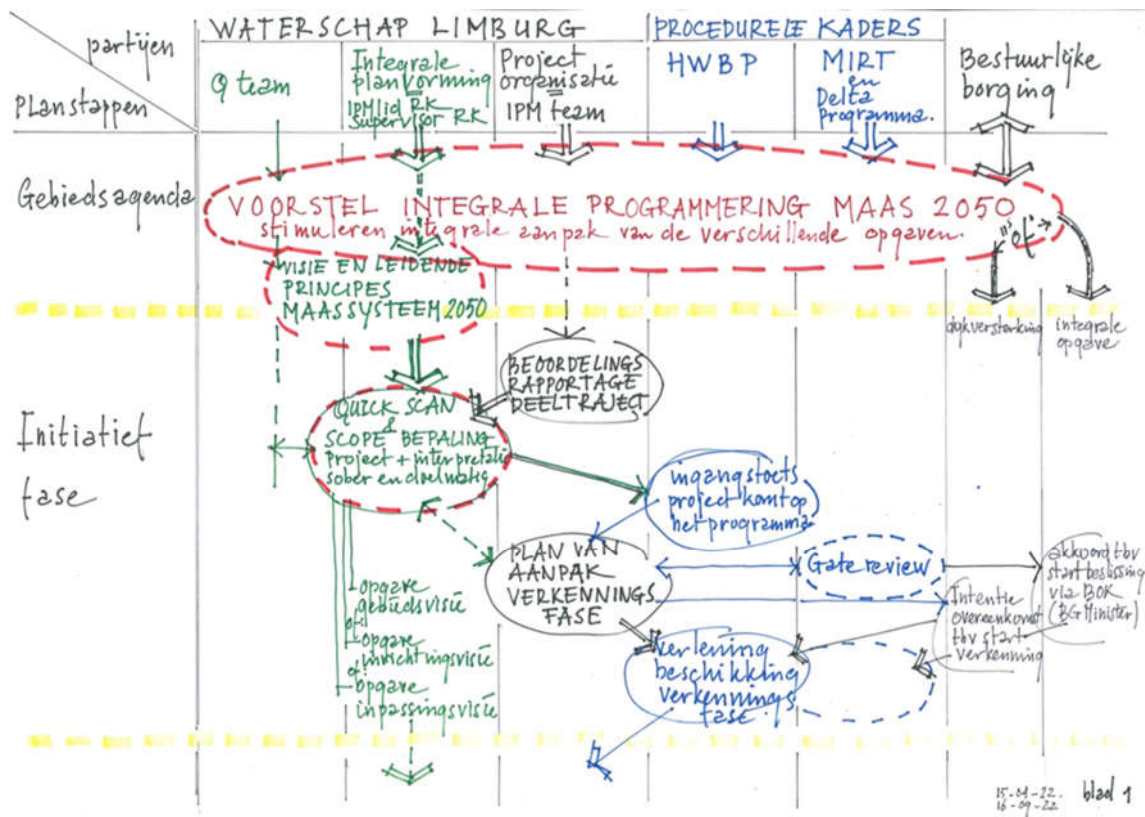 partijen
Planstappen
WATERSCHAP LIMBURG
PROCEDURELE KADERS
Q team
Integrale
planvorming
IPMlid RK
supervisor RK
Project
organisatie
IPM team
HWBP
MIRT
en
Delta
Programma.
Bestuurlijke
borging
Gebiedsagenda
VOORSTEL INTEGRALE PROGRAMMERING MAAS 2050
stimuleren integrale aanpak van de verschillende opgaven.
"of"
VISIE EN LEIDENDE
PRINCIPES
MAASSYSTEEM 2050
dijkversterking
integrale
opgave
Initiatief
fase
BEOORDELINGS
RAPPORTAGE
DEELTRAJECT
QUICK SCAN
&
SCOPE BEPALING
Project + interpretatie
sober en doelmatig
ingangstoets
project komt op
het programma.
PLAN VAN
AANPAK
VERKENNINGS
FASE
Gate review
akkoord tbv
startbeslissing
via BOK
(BG Minister)
Intentie
overeenkomst
tbv start
verkenning
opgave
gebiedsvisie
of
opgave
inrichtingsvisie
of
opgave
inpassingsvisie
verlening
beschikking
verkennings
fase.
15-01-22.
16-09-22
blad 1